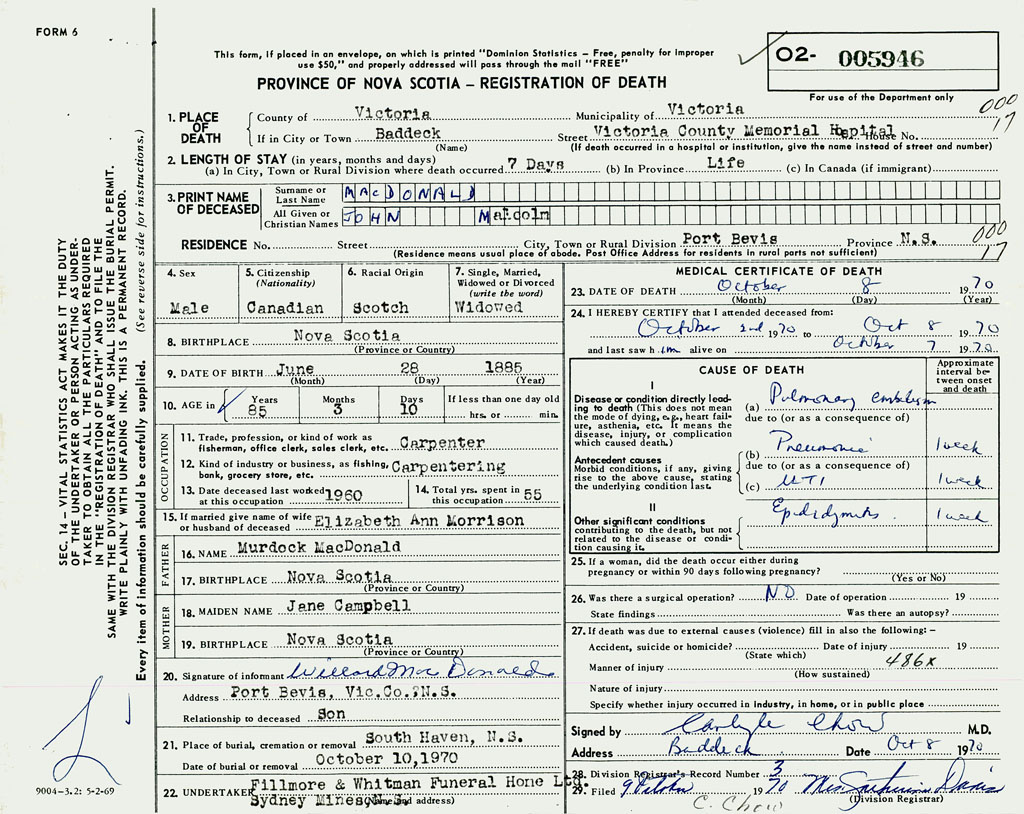 FORM 6
This form, if placed in an envelope, on which is printed "Dominion Statistics – Free, penalty for improper
use $50," and properly addressed will pass through the mail "FREE"
PROVINCE OF NOVA SCOTIA – REGISTRATION OF DEATH
O2- 005946
For use of the Department only
000
17
1. PLACE OF DEATH
County of Victoria Municipality of Victoria
If in City or Town Baddeck Street Victoria County Memorial Hospital House No.
(Name) (If death occurred in a hospital or institution, give the name instead of street and number)
2. LENGTH OF STAY (in years, months and days)
(a) In City, Town or Rural Division where death occurred 7 Days (b) In Province Life (c) In Canada (if immigrant)
3. PRINT NAME OF DECEASED
Surname or Last Name MACDONALD
All Given or Christian Names JOHN Malcolm
RESIDENCE No. Street City, Town or Rural Division Port Bevis Province N.S.
(Residence means usual place of abode. Post Office Address for residents in rural parts not sufficient)
000
17
4. Sex
Male
5. Citizenship
(Nationality)
Canadian
6. Racial Origin
Scotch
7. Single, Married,
Widowed or Divorced
(write the word)
Widowed
8. BIRTHPLACE Nova Scotia
(Province or Country)
9. DATE OF BIRTH June 28 1885
(Month) (Day) (Year)
10. AGE in Years Months Days If less than one day old
85 3 10 hrs. or min.
OCCUPATION
11. Trade, profession, or kind of work as
fisherman, office clerk, sales clerk, etc. Carpenter
12. Kind of industry or business, as fishing,
bank, grocery store, etc. Carpentering
13. Date deceased last worked
at this occupation 1960
14. Total yrs. spent in
this occupation 55
15. If married give name of wife
or husband of deceased Elizabeth Ann Morrison
FATHER
16. NAME Murdock MacDonald
17. BIRTHPLACE Nova Scotia
(Province or Country)
MOTHER
18. MAIDEN NAME Jane Campbell
19. BIRTHPLACE Nova Scotia
(Province or Country)
20. Signature of informant Willard MacDonald
Address Port Bevis, Vic.Co.,N.S.
Relationship to deceased Son
21. Place of burial, cremation or removal South Haven, N.S.
Date of burial or removal October 10,1970
22. UNDERTAKER Fillmore & Whitman Funeral Home Ltd.
Sydney Mines, N.S.
(Name and address)
MEDICAL CERTIFICATE OF DEATH
23. DATE OF DEATH October 8 1970
(Month) (Day) (Year)
24. I HEREBY CERTIFY that I attended deceased from:
October 2nd 1970 to Oct 8 1970
and last saw him alive on October 7 1970
CAUSE OF DEATH
Approximate
interval be-
tween onset
and death
I
Disease or condition directly lead-
ing to death (This does not mean
the mode of dying, e.g., heart fail-
ure, asthenia, etc. It means the
disease, injury, or complication
which caused death.)
(a) Pulmonary embolism
due to (or as a consequence of)
Antecedent causes
Morbid conditions, if any, giving
rise to the above cause, stating
the underlying condition last.
(b) Pneumonia 1 week
due to (or as a consequence of)
(c) UTI 1 week
II
Other significant conditions
contributing to the death, but not
related to the disease or condi-
tion causing it.
Epididymitis 1 week
25. If a woman, did the death occur either during
pregnancy or within 90 days following pregnancy?
(Yes or No)
26. Was there a surgical operation? NO Date of operation 19
State findings Was there an autopsy?
27. If death was due to external causes (violence) fill in also the following: –
Accident, suicide or homicide? Date of injury 19
(State which)
486x
Manner of injury
(How sustained)
Nature of injury
Specify whether injury occurred in industry, in home, or in public place
Signed by Carlyle Chow M.D.
Address Baddeck Date Oct 8 1970
28. Division Registrar's Record Number 3
29. Filed 9 October 1970 Mrs Davis
(Division Registrar)
C. Chow
SEC. 14 – VITAL STATISTICS ACT MAKES IT THE DUTY
OF THE UNDERTAKER OR PERSON ACTING AS UNDER-
TAKER TO OBTAIN ALL THE PARTICULARS REQUIRED
IN THE "REGISTRATION OF DEATH" AND TO FILE THE
SAME WITH THE DIVISION REGISTRAR WHO SHALL ISSUE THE BURIAL PERMIT.
WRITE PLAINLY WITH UNFADING INK. THIS IS A PERMANENT RECORD.
Every item of information should be carefully supplied. (See reverse side for instructions.)
9004-3.2: 5-2-69